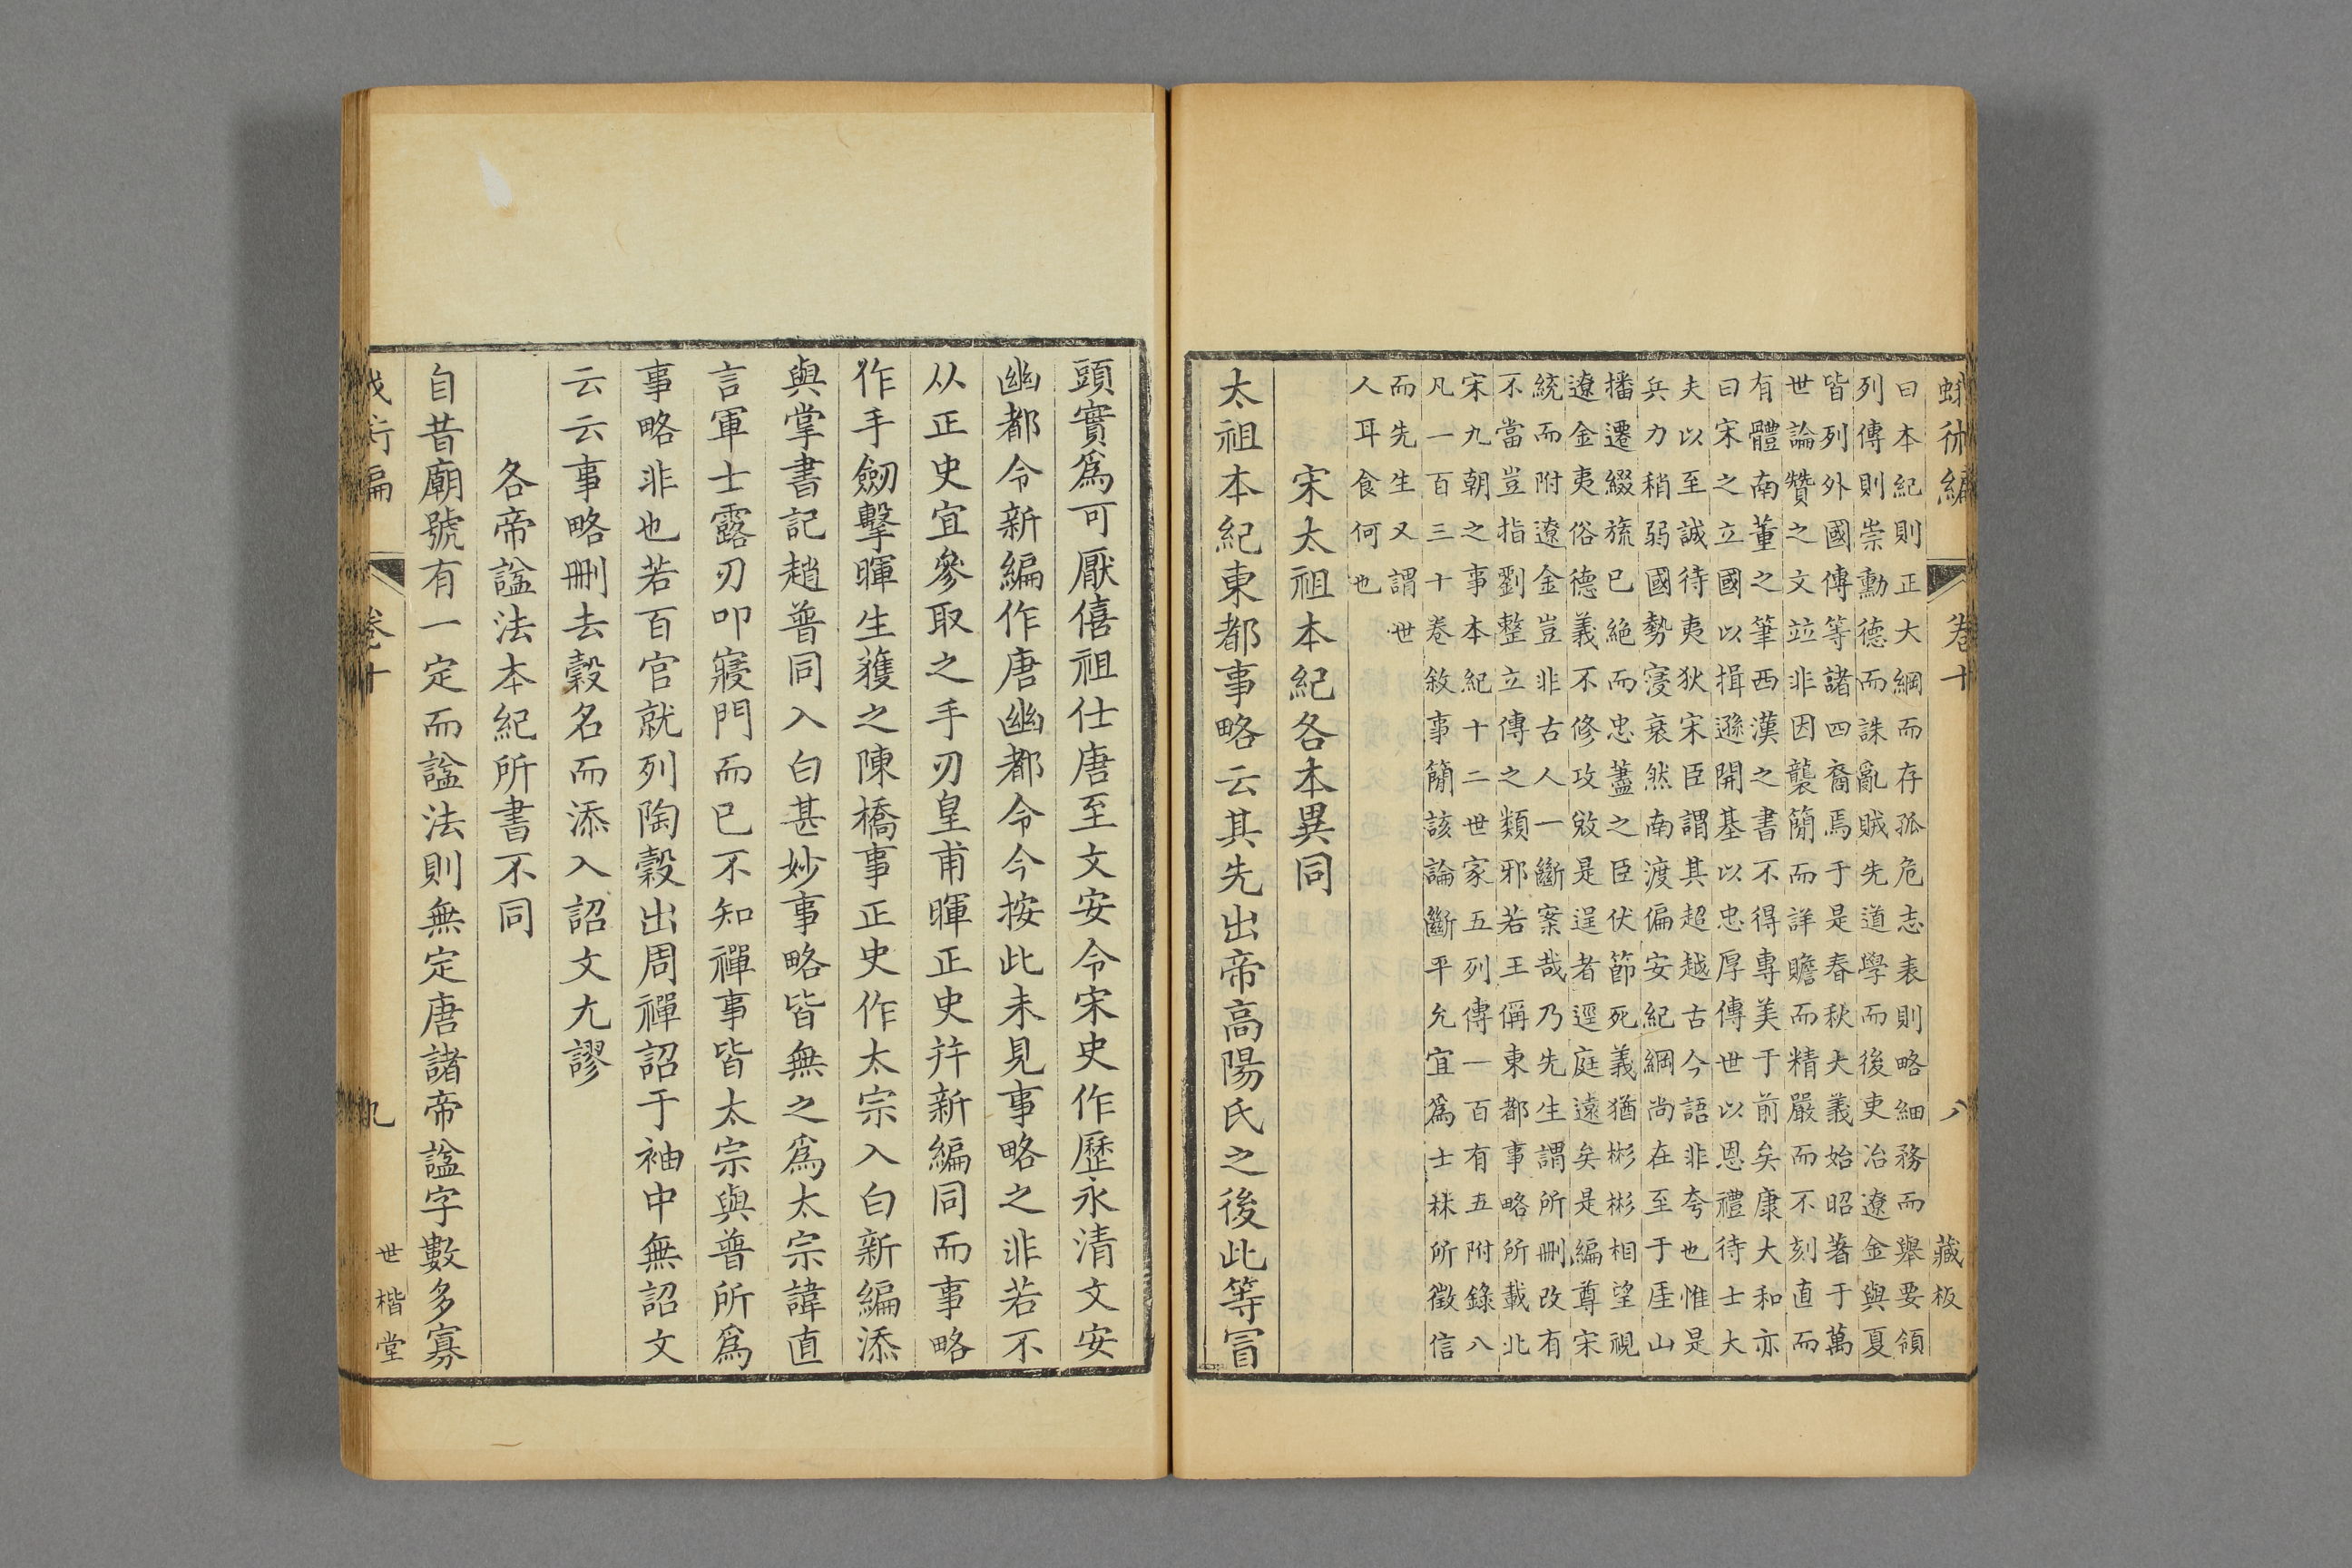 蛾術編 卷十 八 藏板
曰本紀則正大綱而存孤危志表則略細務而舉要領
列傳則崇勳德而誅亂賊先道學而後吏治遼金與夏
皆列外國傳等諸四裔焉于是春秋大義始昭著于萬
世論贊之文竝非因襲簡而詳贍而精嚴而不刻直而
有體南董之筆西漢之書不得專美于前矣康大和亦
曰宋之立國以揖遜開基以忠厚傳世以恩禮待士大
夫以至誠待夷狄宋臣謂其超越古今語非夸也惟是
兵力稍弱國勢寖衰然南渡偏安紀綱尚在至于厓山
播遷綴旒已絶而忠藎之臣伏節死義猶彬彬相望視
遼金夷俗德義不修攻敓是逞者逕庭遠矣是編尊宋
統而附遼金豈非古人一斷案哉乃先生謂所刪改有
不當豈指劉整立傳之類邪若王偁東都事略所載北
宋九朝之事本紀十二世家五列傳一百有五附錄八
凡一百三十卷敘事簡該論斷平允宜爲士林所徵信
而先生又謂世
人耳食何也
宋太祖本紀各本異同
太祖本紀東都事略云其先出帝高陽氏之後此等冒
頭實爲可厭僖祖仕唐至文安令宋史作歷永清文安
幽都令新編作唐幽都令今按此未見事略之非若不
从正史宜參取之手刃皇甫暉正史幷新編同而事略
作手劒擊暉生獲之陳橋事正史作太宗入白新編添
與掌書記趙普同入白甚妙事略皆無之爲太宗諱直
言軍士露刃叩寢門而已不知禪事皆太宗與普所爲
事略非也若百官就列陶穀出周禪詔于袖中無詔文
云云事略刪去穀名而添入詔文尢謬
各帝諡法本紀所書不同
自昔廟號有一定而諡法則無定唐諸帝諡字數多寡
蛾術編 卷十 九 世楷堂